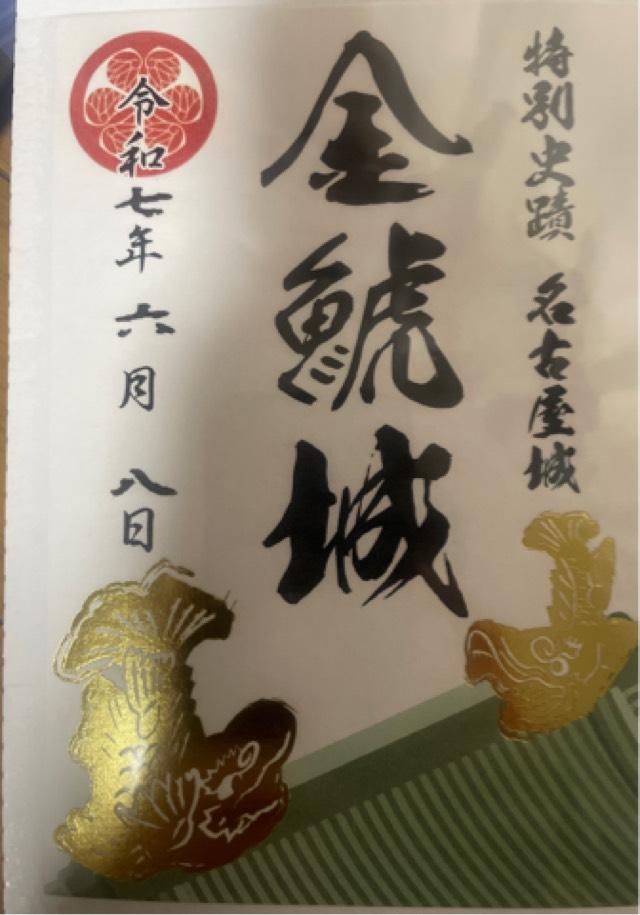 特別史蹟 名古屋城
金鯱城
令和七年 六月 八日